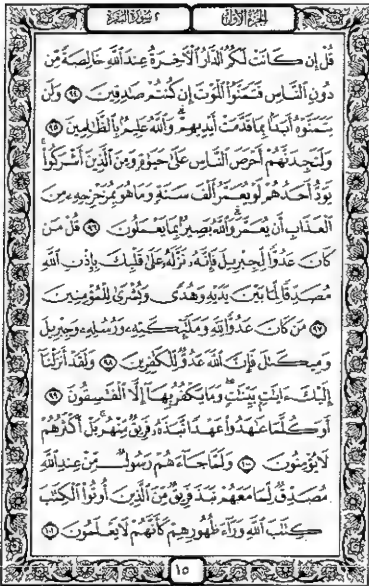 الجزء الأول
٢ سورة البقرة
قُلْ إِن كَانَتْ لَكُمُ ٱلدَّارُ ٱلْأَخِرَةُ عِندَ ٱللَّهِ خَالِصَةً مِّن
دُونِ ٱلنَّاسِ فَتَمَنَّوُا۟ ٱلْمَوْتَ إِن كُنتُمْ صَٰدِقِينَ ٩٤ وَلَن
يَتَمَنَّوْهُ أَبَدًۢا بِمَا قَدَّمَتْ أَيْدِيهِمْ وَٱللَّهُ عَلِيمٌۢ بِٱلظَّٰلِمِينَ ٩٥
وَلَتَجِدَنَّهُمْ أَحْرَصَ ٱلنَّاسِ عَلَىٰ حَيَوٰةٍ وَمِنَ ٱلَّذِينَ أَشْرَكُوا۟
يَوَدُّ أَحَدُهُمْ لَوْ يُعَمَّرُ أَلْفَ سَنَةٍ وَمَا هُوَ بِمُزَحْزِحِهِۦ مِنَ
ٱلْعَذَابِ أَن يُعَمَّرَ وَٱللَّهُ بَصِيرٌۢ بِمَا يَعْمَلُونَ ٩٦ قُلْ مَن
كَانَ عَدُوًّا لِّجِبْرِيلَ فَإِنَّهُۥ نَزَّلَهُۥ عَلَىٰ قَلْبِكَ بِإِذْنِ ٱللَّهِ
مُصَدِّقًا لِّمَا بَيْنَ يَدَيْهِ وَهُدًى وَبُشْرَىٰ لِلْمُؤْمِنِينَ
٩٧ مَن كَانَ عَدُوًّا لِّلَّهِ وَمَلَٰٓئِكَتِهِۦ وَرُسُلِهِۦ وَجِبْرِيلَ
وَمِيكَىٰلَ فَإِنَّ ٱللَّهَ عَدُوٌّ لِّلْكَٰفِرِينَ ٩٨ وَلَقَدْ أَنزَلْنَآ
إِلَيْكَ ءَايَٰتٍۭ بَيِّنَٰتٍ وَمَا يَكْفُرُ بِهَآ إِلَّا ٱلْفَٰسِقُونَ ٩٩
أَوَكُلَّمَا عَٰهَدُوا۟ عَهْدًا نَّبَذَهُۥ فَرِيقٌ مِّنْهُم بَلْ أَكْثَرُهُمْ
لَا يُؤْمِنُونَ ١٠٠ وَلَمَّا جَآءَهُمْ رَسُولٌ مِّنْ عِندِ ٱللَّهِ
مُصَدِّقٌ لِّمَا مَعَهُمْ نَبَذَ فَرِيقٌ مِّنَ ٱلَّذِينَ أُوتُوا۟ ٱلْكِتَٰبَ
كِتَٰبَ ٱللَّهِ وَرَآءَ ظُهُورِهِمْ كَأَنَّهُمْ لَا يَعْلَمُونَ ١٠١
١٥